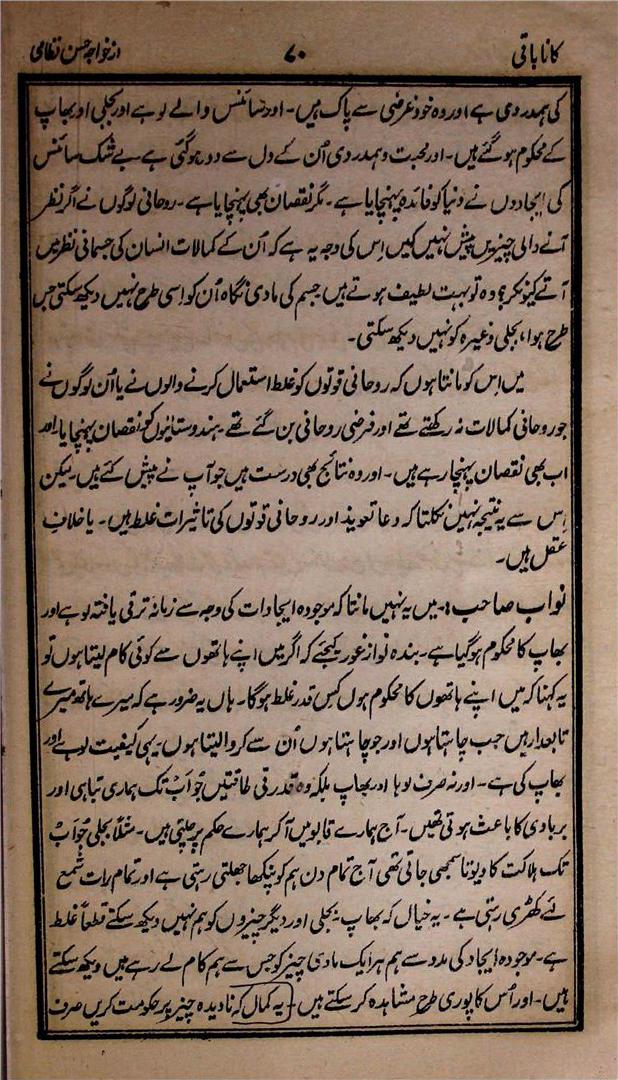 کانا باتی
۷۰
از خواجہ حسن نظامی
کی ہمدردی ہے اور وہ خود غرضی سے پاک ہیں۔ اور سائنس والے لوہے اور بجلی اور بھاپ
کے محکوم ہو گئے ہیں۔ اور محبت و ہمدردی اُن کے دل سے دور ہو گئی ہے۔ بے شک سائنس
کی ایجادوں نے دنیا کو فائدہ پہنچایا ہے۔ مگر نقصان بھی پہنچایا ہے۔ روحانی لوگوں نے اگر نظر
آنے والی چیزیں پیش نہیں کیں اِس کی وجہ یہ ہے کہ اُن کے کمالات انسان کی جسمانی نظر میں
آتے کیونکر؟ وہ تو بہت لطیف ہوتے ہیں جسم کی مادی نگاہ اُن کو اسی طرح نہیں دیکھ سکتی جس
طرح ہوا، بجلی وغیرہ کو نہیں دیکھ سکتی۔
میں اِس کو مانتا ہوں کہ روحانی قوتوں کو غلط استعمال کرنے والوں نے یا اُن لوگوں نے
جو روحانی کمالات نہ رکھتے تھے اور فرضی روحانی بن گئے تھے۔ ہندوستانیوں کو نقصان پہنچایا اور
اب بھی نقصان پہنچا رہے ہیں۔ اور وہ نتائج بھی درست ہیں جو آپ نے پیش کئے ہیں۔ لیکن
اِس سے یہ نتیجہ نہیں نکلتا کہ دعا تعویذ اور روحانی قوتوں کی تاثیرات غلط ہیں۔ یا خلافِ
عقل ہیں۔
نواب صاحب:۔ میں یہ نہیں مانتا کہ موجودہ ایجادات کی وجہ سے زمانہ ترقی یافتہ لوہے اور
بھاپ کا محکوم ہو گیا ہے۔ بندہ نواز غور کیجئے کہ اگر میں اپنے ہاتھوں سے کوئی کام لیتا ہوں تو
یہ کہنا کہ میں اپنے ہاتھوں کا محکوم ہوں کس قدر غلط ہوگا۔ ہاں یہ ضرور ہے کہ میرے ہاتھ میرے
تابعدار ہیں جب چاہتا ہوں اور جو چاہتا ہوں اُن سے کروا لیتا ہوں۔ یہی کیفیت لوہے اور
بھاپ کی ہے۔ اور نہ صرف لوہا اور بھاپ بلکہ وہ قدرتی طاقتیں جو اَبْ تک ہماری تباہی اور
بربادی کا باعث ہوتی تھیں۔ آج ہمارے قابو میں آکر ہمارے حکم پر چلتی ہیں۔ مثلاً بجلی جو اَبْ
تک ہلاکت کا دیوتا سمجھی جاتی تھی آج تمام دن ہم کو پنکھا جھلتی رہتی ہے اور تمام رات شمع
لئے کھڑی رہتی ہے۔ یہ خیال کہ بھاپ۔ بجلی اور دیگر چیزوں کو ہم نہیں دیکھ سکتے قطعاً غلط
ہے۔ موجودہ ایجاد کی مدد سے ہم ہر ایک مادی چیز کو جس سے ہم کام لے رہے ہیں دیکھ سکتے
ہیں۔ اور اُس کا پوری طرح مشاہدہ کر سکتے ہیں۔ یہ کمال کہ نادیدہ چیز پر حکومت کریں صرف